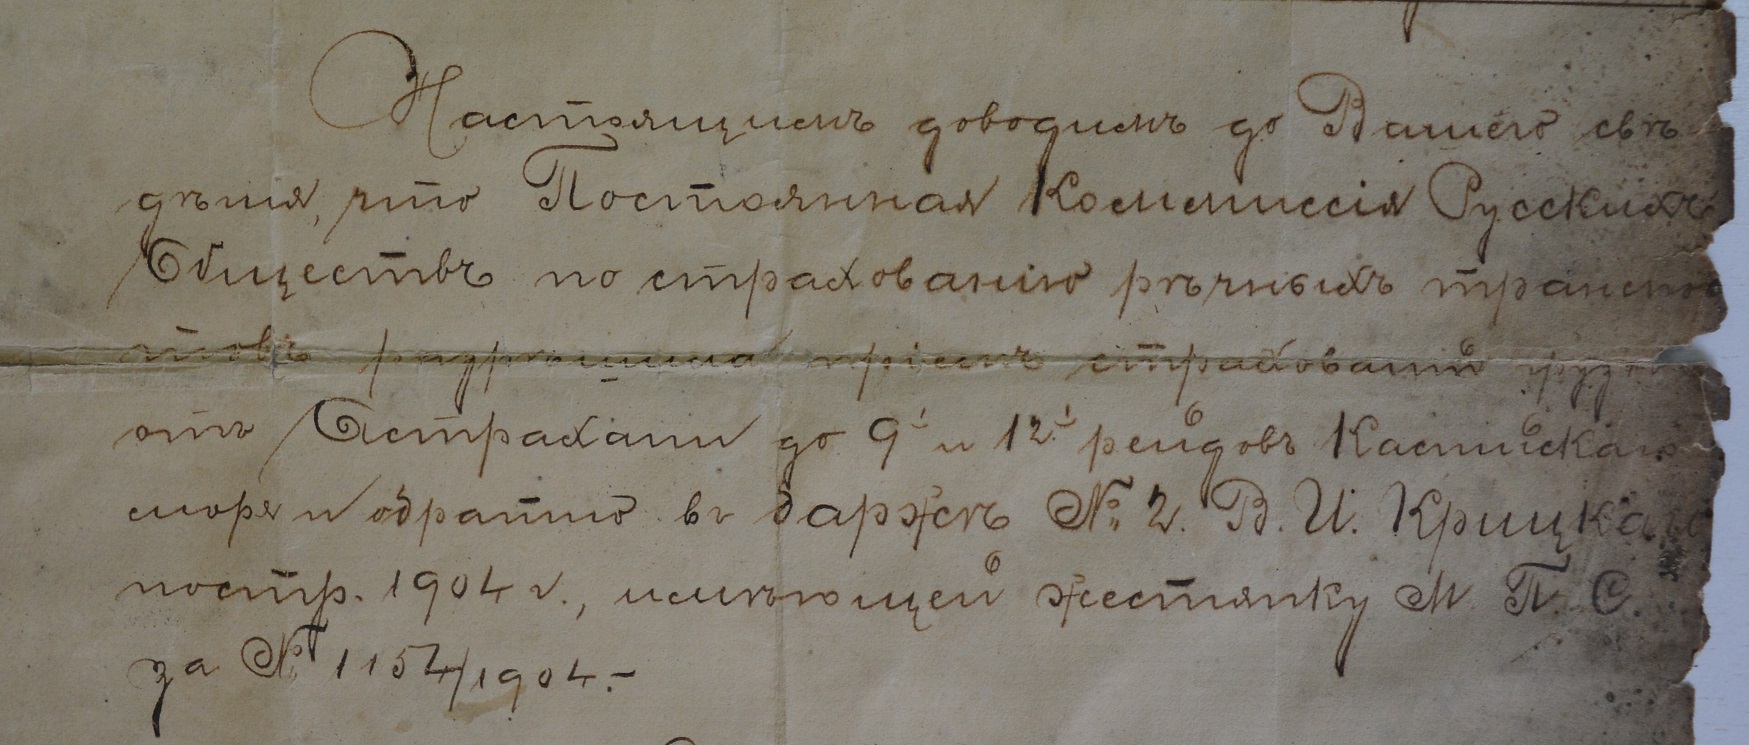 Настоящимъ доводимъ до Вашего свѣ
дѣнія, что Постоянная Коммиссія Русскихъ
Обществъ по страхованію рѣчныхъ транспор
товъ разрѣшила пріемъ страхованій грузовъ
отъ Астрахани до 9 и 12 рейдовъ Каспійскаго
моря и обратно въ баржѣ № 2. В. И. Крицкаго
постр. 1904 г., имѣющей жестянку М. П. С.
за № 1154/1904.-